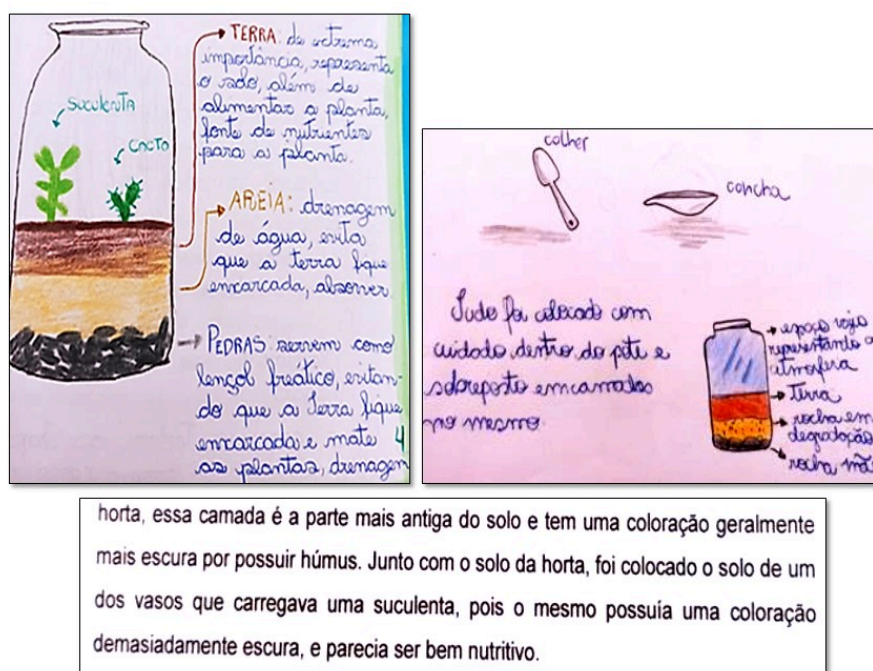 TERRA: de extrema
importância, representa
o solo, além de
alimentar a planta,
fonte de nutrientes
para a planta.
SUCULENTA
CACTO
AREIA: drenagem
de água, evita
que a terra fique
encarcada, absorver.
PEDRAS servem como
lençol freático, evitan-
do que a Terra fique
encarcada e mate
as plantas, drenagem
4
colher
concha
Tudo foi colocado com
cuidado dentro do pote e
sobreposto em camadas
no mesmo.
espaço vazio
representando a
atmosfera
Terra
rocha em
degradação
rocha mãe
horta, essa camada é a parte mais antiga do solo e tem uma coloração geralmente
mais escura por possuir húmus. Junto com o solo da horta, foi colocado o solo de um
dos vasos que carregava uma suculenta, pois o mesmo possuía uma coloração
demasiadamente escura, e parecia ser bem nutritivo.